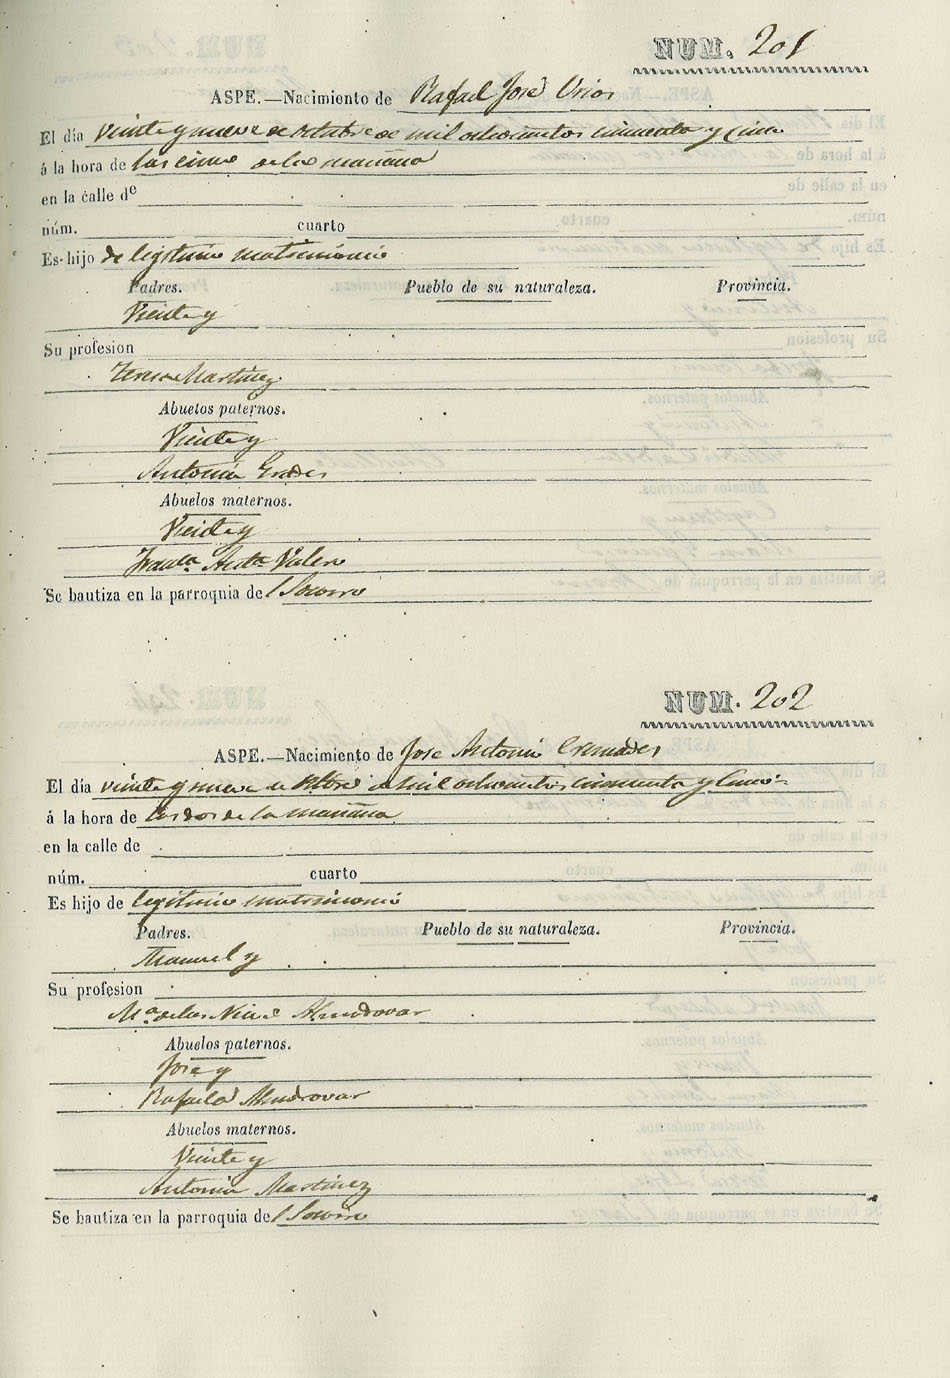 NUM. 201
ASPE.—Nacimiento de Rafael José Urios
El día veinte y nueve de octubre de mil ochocientos cincuenta y cinco
á la hora de las cinco de la mañana
en la calle de
núm. cuarto
Es hijo de legitimo matrimonio
Padres. Pueblo de su naturaleza. Provincia.
Vicente y
Su profesion
Teresa Martinez
Abuelos paternos.
Vicente y
Antonia
Abuelos maternos.
Vicente y
Franca. Anta. Valero
Se bautiza en la parroquia del Socorro
NUM. 202
ASPE.—Nacimiento de Jose Antonio Cremades
El día veinte y nueve de Otbre de mil ochocientos cincuenta y cinco
á la hora de las dos de la mañana
en la calle de
núm. cuarto
Es hijo de legitimo matrimonio
Padres. Pueblo de su naturaleza. Provincia.
Manuel y
Su profesion
Ma. de las Nieves Almodovar
Abuelos paternos.
Jose y
Rafaela Almodovar
Abuelos maternos.
Vicente y
Antonia Martinez
Se bautiza en la parroquia del Socorro